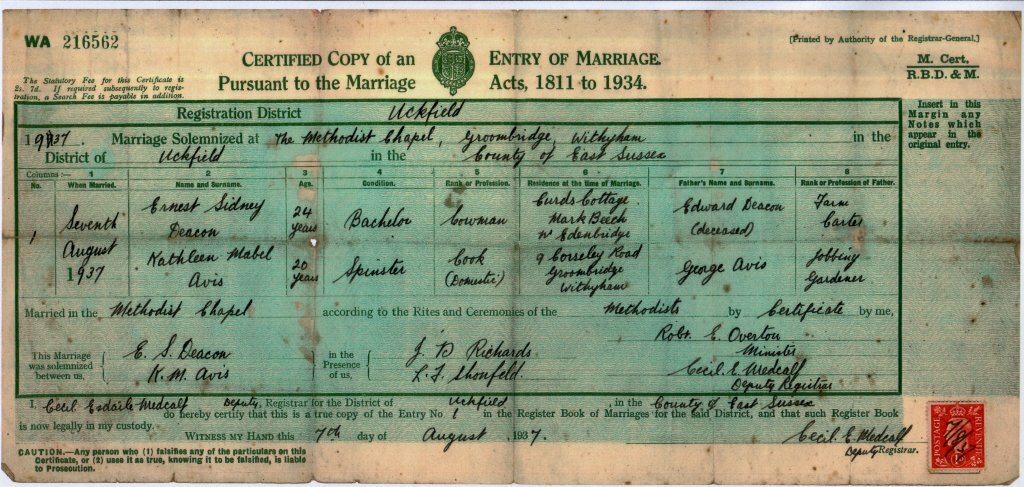 WA 216562
CERTIFIED COPY OF AN ENTRY OF MARRIAGE.
Pursuant to the Marriage Acts, 1811 to 1934.
[Printed by Authority of the Registrar-General.]
M. Cert.
R.B.D. & M.
The Statutory Fee for this Certificate is
2s. 7d. If required subsequently to regis-
tration, a Search Fee is payable in addition.
Registration District Uckfield
Insert in this
Margin any
Notes which
appear in the
original entry.
1937. Marriage Solemnized at The Methodist Chapel, Groombridge, Withyham in the
District of Uckfield in the County of East Sussex
Columns :— 1 2 3 4 5 6 7 8
No. When Married. Name and Surname. Age. Condition. Rank or Profession. Residence at the time of Marriage. Father's Name and Surname. Rank or Profession of Father.
1 Seventh August 1937
Ernest Sidney Deacon 24 years Bachelor Cowman Curds Cottage Mark Beech Nr Edenbridge Edward Deacon (deceased) Farm Carter
Kathleen Mabel Avis 20 years Spinster Cook (Domestic) 9 Corseley Road Groombridge Withyham George Avis Jobbing Gardener
Married in the Methodist Chapel according to the Rites and Ceremonies of the Methodists by Certificate by me,
Robt. E. Overton
Minister
This Marriage was solemnized between us, E. S. Deacon K. M. Avis in the Presence of us, J. D Richards L. F. Shonfeld.
Cecil. E. Medcalf
Deputy Registrar
I, Cecil Esdaile Medcalf Deputy, Registrar for the District of Uckfield, in the County of East Sussex
do hereby certify that this is a true copy of the Entry No. 1 in the Register Book of Marriages for the said District, and that such Register Book
is now legally in my custody.
WITNESS MY HAND this 7th day of August, 1937.
Cecil. E. Medcalf
Deputy Registrar.
CAUTION.—Any person who (1) falsifies any of the particulars on this
Certificate, or (2) uses it as true, knowing it to be falsified, is liable
to Prosecution.
POSTAGE REVENUE